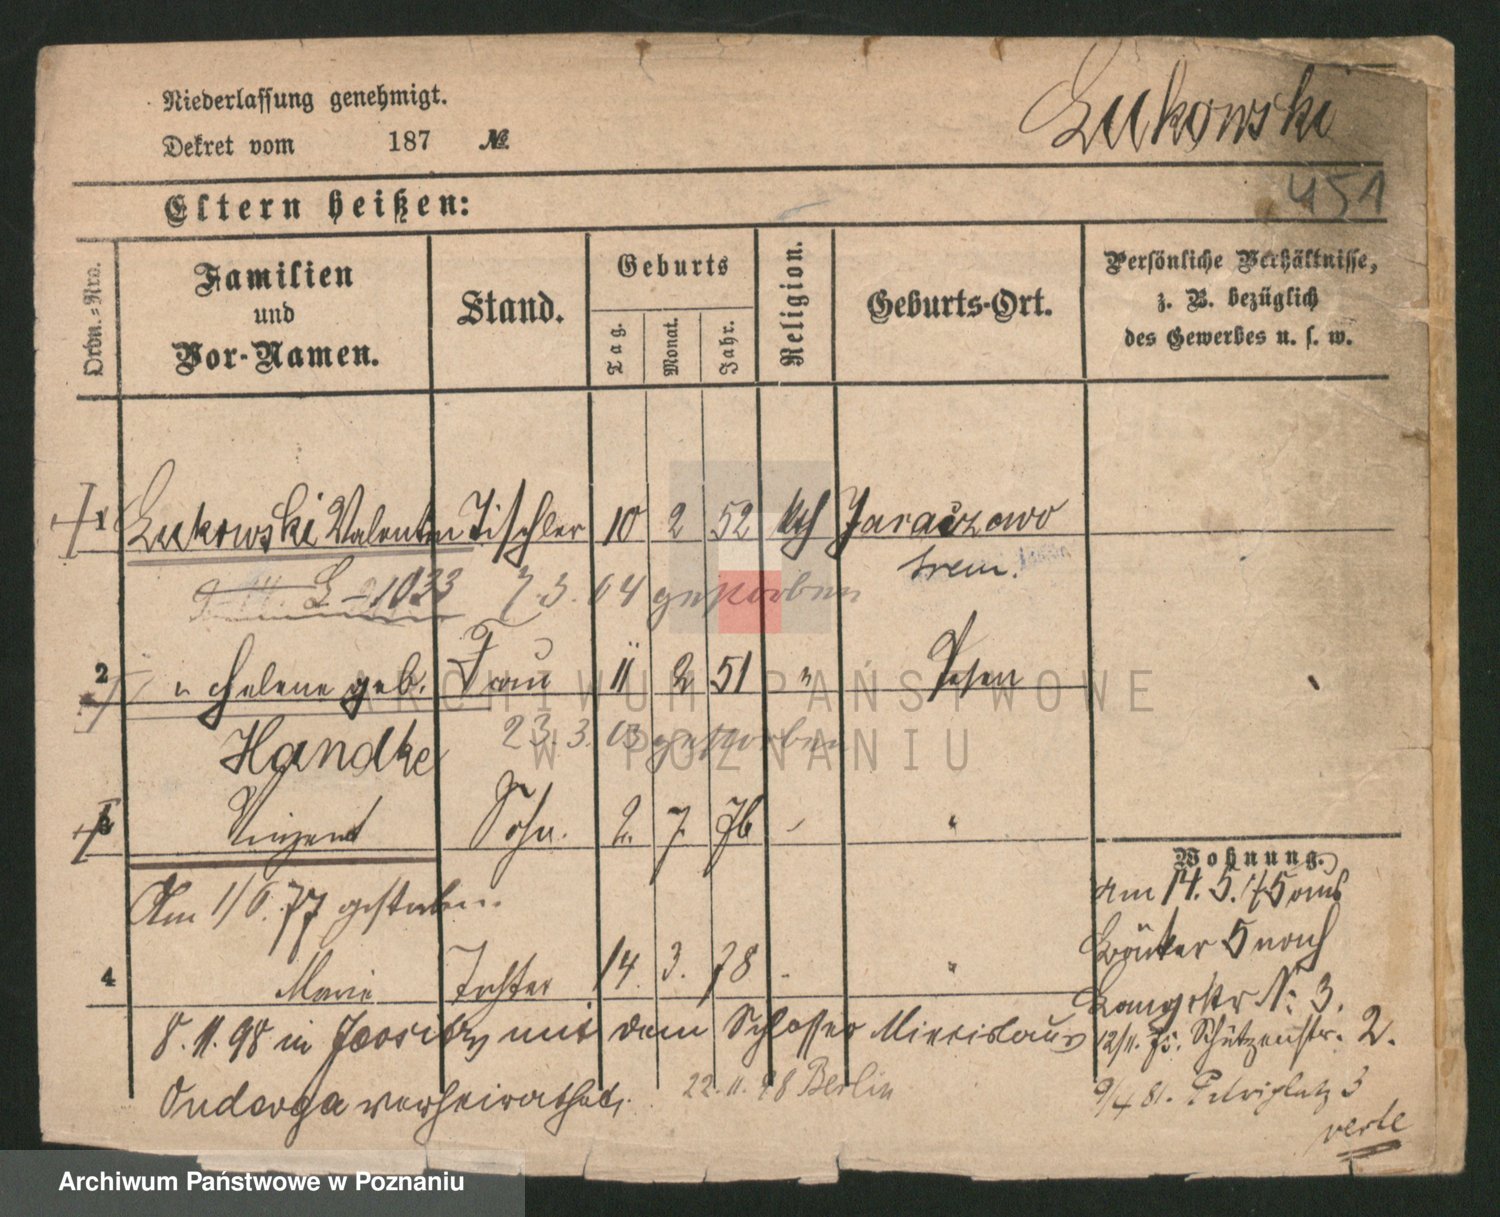 Niederlassung genehmigt.
Dekret vom 187 №
Lukowski
451
Eltern heißen:
Ordn.-Nro.
Familien und Vor-Namen.
Stand.
Geburts
Tag.
Monat.
Jahr.
Religion.
Geburts-Ort.
Persönliche Verhältnisse, z. B. bezüglich des Gewerbes u. s. w.
1 Lukowski Valentin Tischler 10 2 52 kth Jaraczewo
Srem.
G - 1033 7.3.04 gestorben
2 " Helene geb. Frau 11 2 51 " Posen
Handke 23.3.03 gestorben
3 Vinzent Sohn. 2. 7. 76 "
Am 1/6. 77 gestorben.
4 Marie Tochter 14. 3. 78 "
8. 11. 98 in mit dem Schlosser
verheirathet. 22. 11. 98 Berlin
Wohnung.
Am 14. 5. 75 aus
Bäcker 5 nach
Langestr № 3.
12/11. 75. Schützenstr. 2.
9/4 81. Petriplatz 3
verte
ARCHIWUM PAŃSTWOWE
W POZNANIU
Archiwum Państwowe w Poznaniu